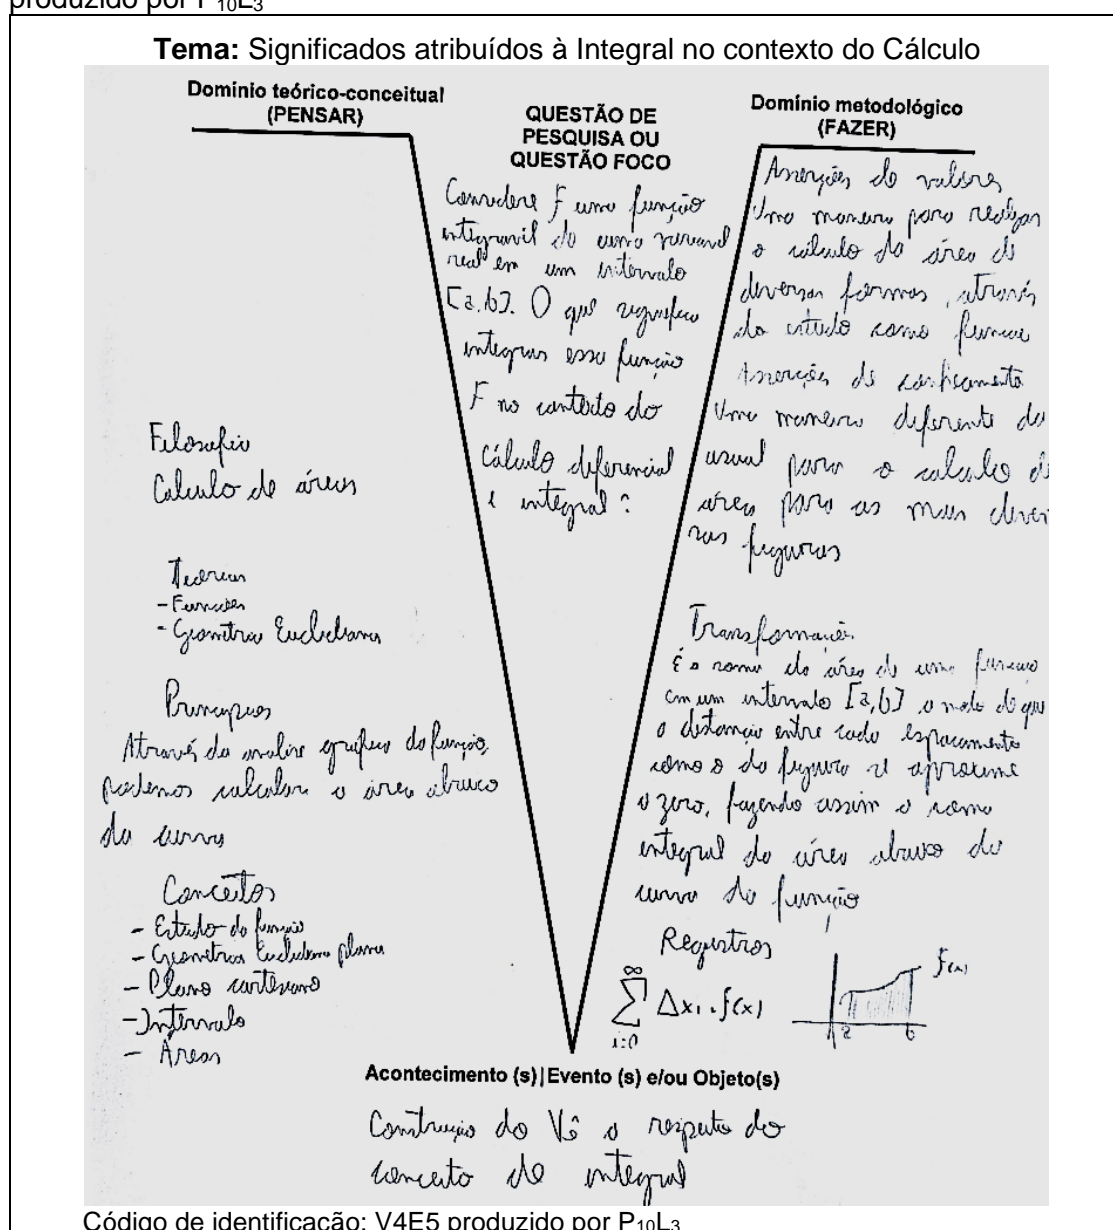 produzido por P10L3
Tema: Significados atribuídos à Integral no contexto do Cálculo
Domínio teórico-conceitual
(PENSAR)
Filosofia
Calculo de áreas
Teorias
- Funções
- Geometria Euclidiana
Principios
Através da analise grafica da função,
podemos calcular a área abaixo
da curva
Conceitos
- Estudo da função
- Geometria Euclidiana plana
- Plano cartesiano
- Intervalo
- Áreas
QUESTÃO DE
PESQUISA OU
QUESTÃO FOCO
Considere F uma função
integravil de uma variavel
real em um intervalo
[a,b]. O que significa
integrar essa função
F no contexto do
Cálculo diferencial
e integral?
Domínio metodológico
(FAZER)
Asserções de valores
Uma maneira para realizar
o cálculo da área de
diversas formas, através
do estudo como
Asserções de conhecimento
Uma maneira diferente da
usual para o calculo de
área para as mais diver
sas figuras
Transformações
É a soma da área de uma função
em um intervalo [a,b] a modo de que
a distancia entre cada espaçamento
como o da figura se aproxime
a zero, fazendo assim a soma
integral da área abaixo da
curva da função
Registros
∞
∑ Δxi . f(x)
i=0
f(x)
a b
Acontecimento (s)|Evento (s) e/ou Objeto(s)
Construção do Vê a respeito do
conceito de integral
Código de identificação: V4E5 produzido por P10L3